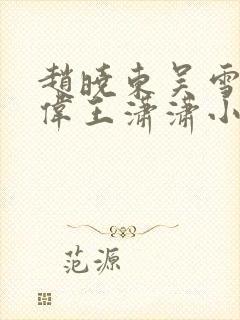 趙曉東吳雪
偉王瀟瀟小
范源